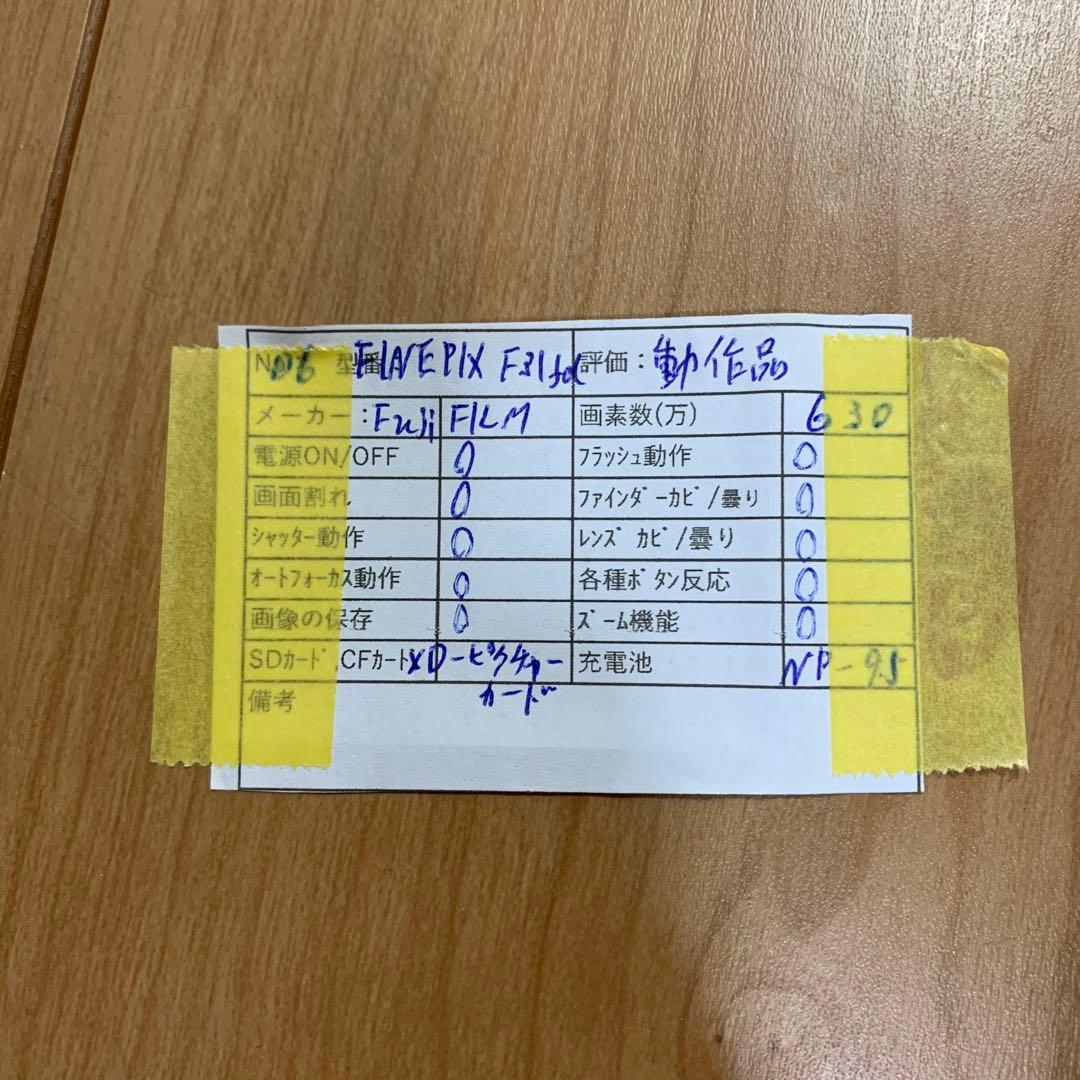 No 06 型番 FINE PIX F31fd 評価：動作品
メーカー：Fuji FILM 画素数(万) 630
電源ON/OFF 0 ﾌﾗｯｼｭ動作 0
画面割れ 0 ﾌｧｲﾝﾀﾞｰｶﾋﾞ/曇り 0
ｼｬｯﾀｰ動作 0 ﾚﾝｽﾞｶﾋﾞ/曇り 0
ｵｰﾄﾌｫｰｶｽ動作 0 各種ﾎﾞﾀﾝ反応 0
画像の保存 0 ｽﾞｰﾑ機能 0
SDｶｰﾄﾞ,CFｶｰﾄﾞ XD-ピクチャー 充電池 NP-95
カード
備考